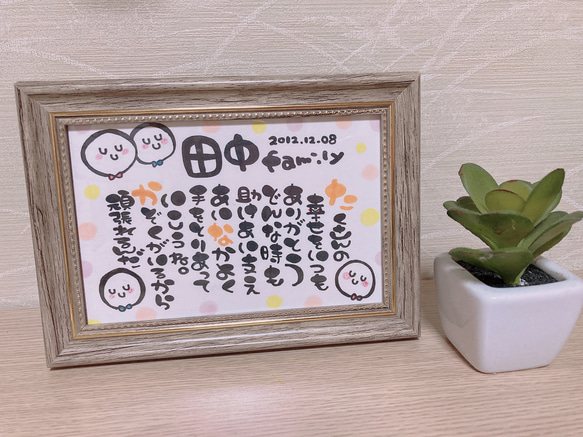 田中family
2012.12.08
たくさんの
幸せをいつも
ありがとう
どんな時も
助けあい支え
あいなかよく
手をとりあって
いこうね。
かぞくがいるから
頑張れるんだ